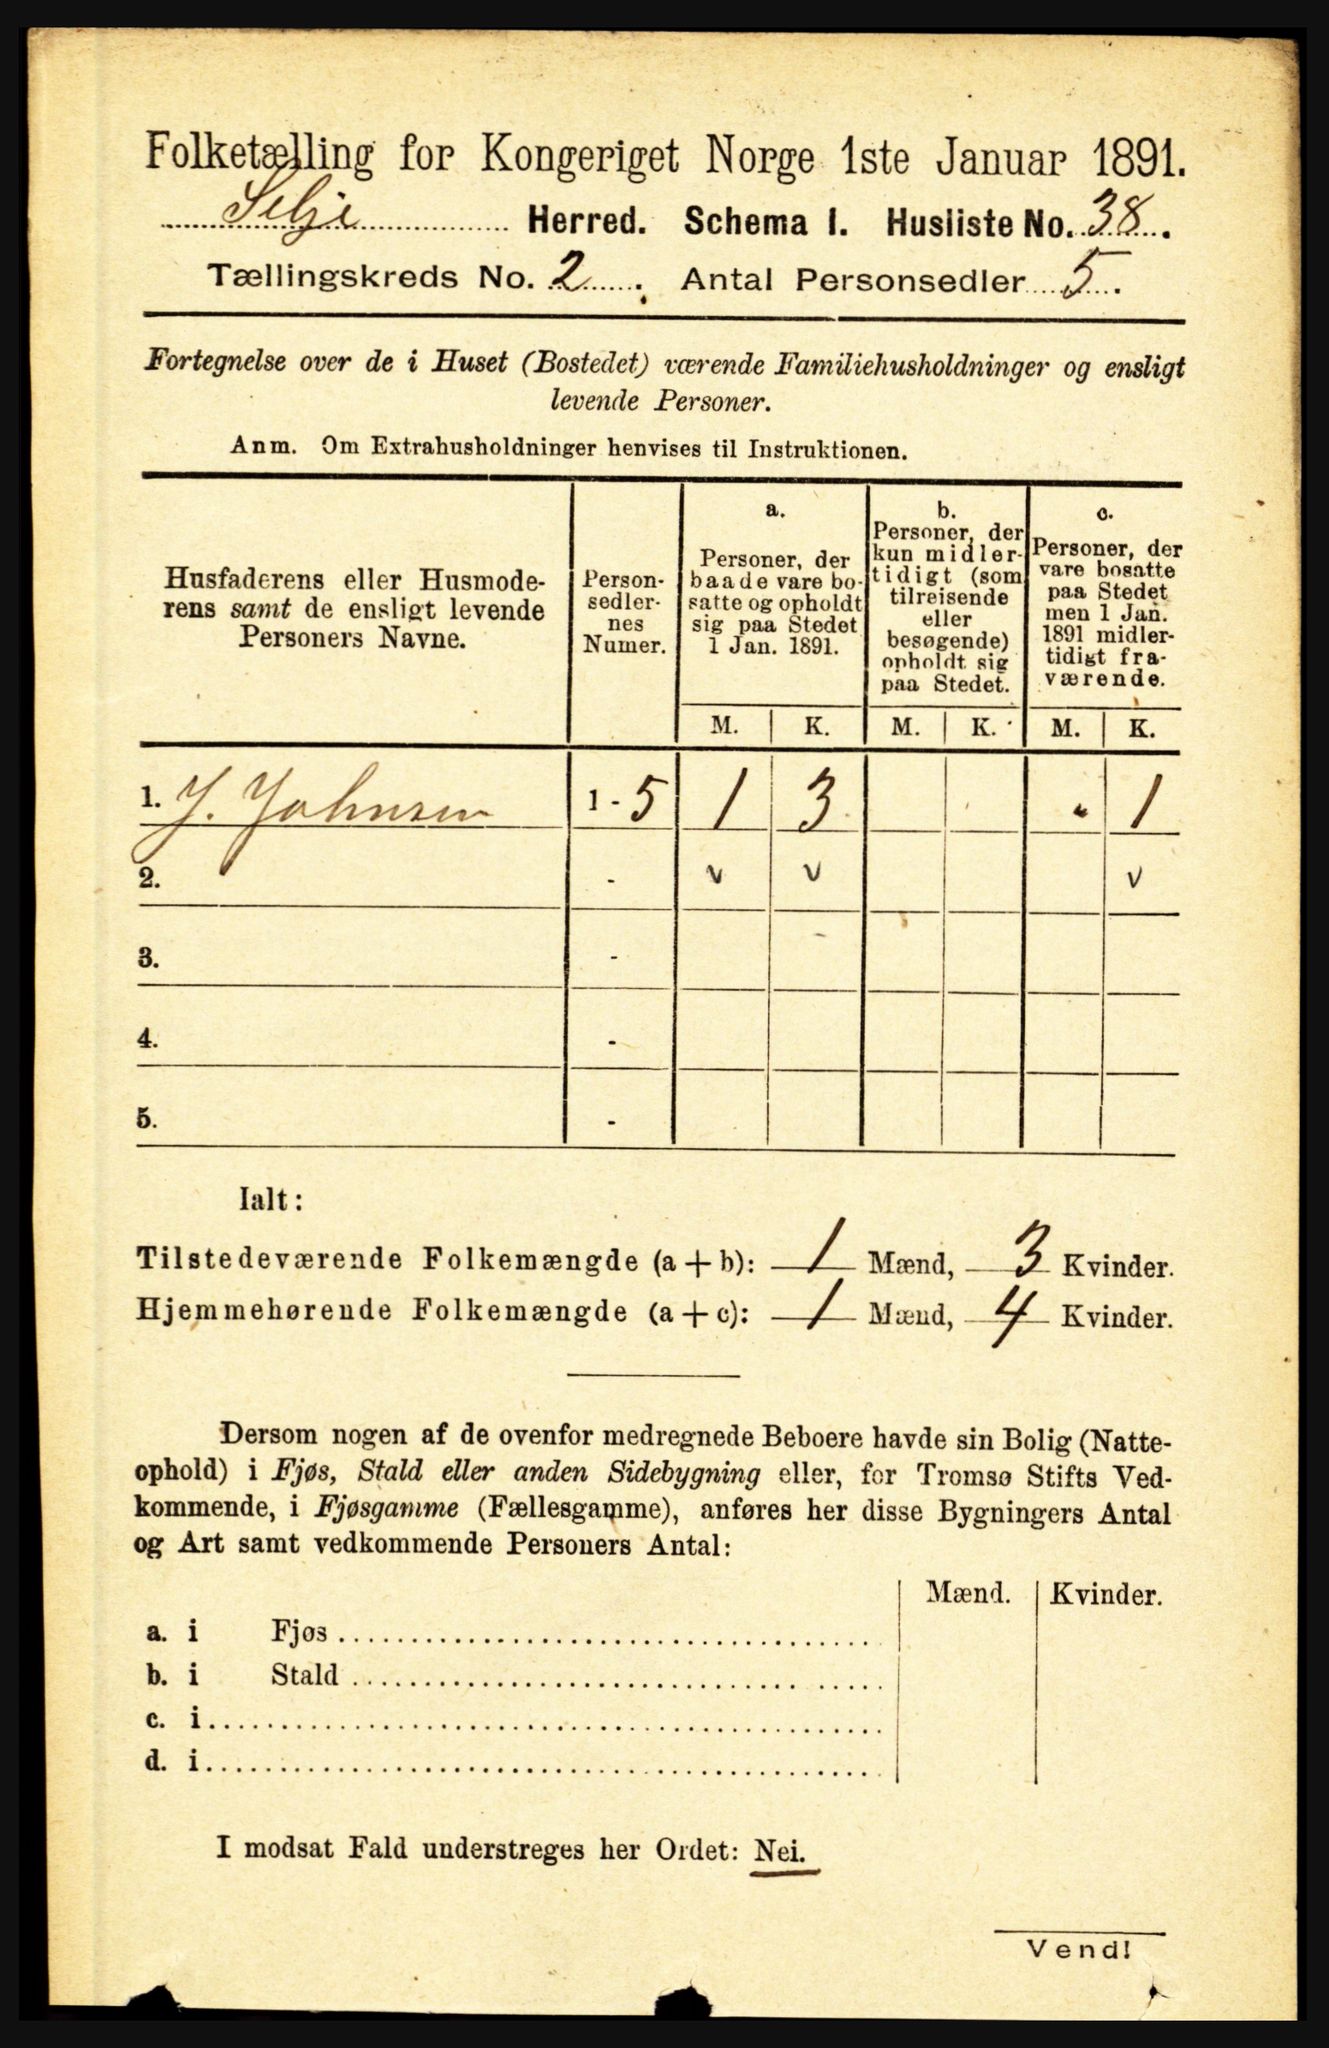 Folketælling for Kongeriget Norge 1ste Januar 1891.
Selje Herred. Schema I. Husliste No. 38.
Tællingskreds No. 2. Antal Personsedler 5.
Fortegnelse over de i Huset (Bostedet) værende Familiehusholdninger og ensligt
levende Personer.
Anm. Om Extrahusholdninger henvises til Instruktionen.
Husfaderens eller Husmode-
rens samt de ensligt levende
Personers Navne.
Person-
sedler-
nes
Numer.
a.
Personer, der
baade vare bo-
satte og opholdt
sig paa Stedet
1 Jan. 1891.
b.
Personer, der
kun midler-
tidigt (som
tilreisende
eller
besøgende)
opholdt sig
paa Stedet.
c.
Personer, der
vare bosatte
paa Stedet
men 1 Jan.
1891 midler-
tidigt fra-
værende.
M. K. M. K. M. K.
1. J. Johnsen 1 - 5 1 3 1
2. - v v v
3. -
4. -
5. -
Ialt:
Tilstedeværende Folkemængde (a + b): 1 Mænd, 3 Kvinder.
Hjemmehørende Folkemængde (a + c): 1 Mænd, 4 Kvinder.
Dersom nogen af de ovenfor medregnede Beboere havde sin Bolig (Natte-
ophold) i Fjøs, Stald eller anden Sidebygning eller, for Tromsø Stifts Ved-
kommende, i Fjøsgamme (Fællesgamme), anføres her disse Bygningers Antal
og Art samt vedkommende Personers Antal:
Mænd. Kvinder.
a. i Fjøs
b. i Stald
c. i
d. i
I modsat Fald understreges her Ordet: Nei.
Vend!